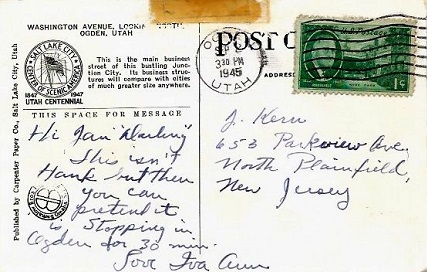 WASHINGTON AVENUE, LOOKING NORTH
OGDEN, UTAH
SALT LAKE CITY
CENTER OF SCENIC AMERICA
1847 1947
UTAH CENTENNIAL
This is the main business
street of this bustling Junc-
tion City. Its business struc-
tures will compare with cities
of much greater size anywhere.
THIS SPACE FOR MESSAGE
Hi Jan "Darling"
This isn't
Hank but then
you can
pretend it
is. Stopping in
Ogden for 30 min.
Love Iva Ann
Published by Carpenter Paper Co., Salt Lake City, Utah
POST C
ADDRESS
330 PM
1945
UTAH
1¢
J. Kern
653 Parkview Ave.
North Plainfield,
New Jersey